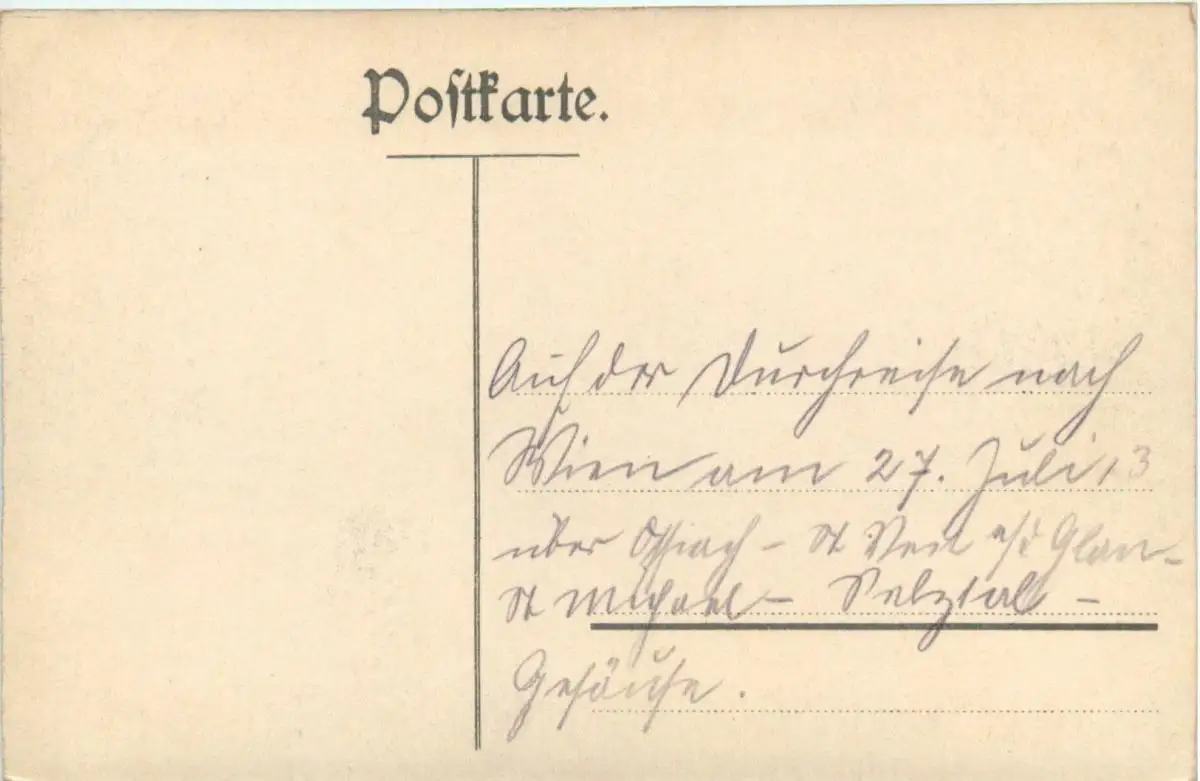 Postkarte.
Auf der Durchreise nach
Wien am 27. Juli 13
über Ossiach – St Veit a/d Glan –
St Michael – Selztal –
Gesäuse.